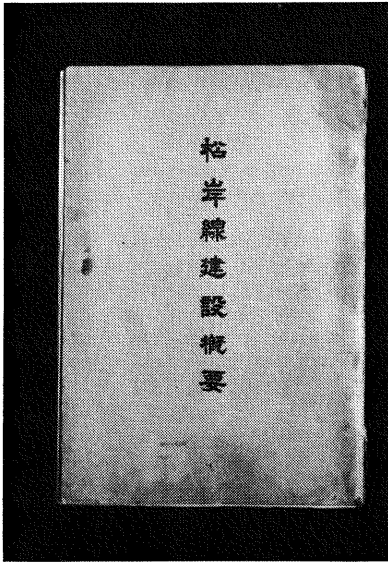 松岸線建設概要